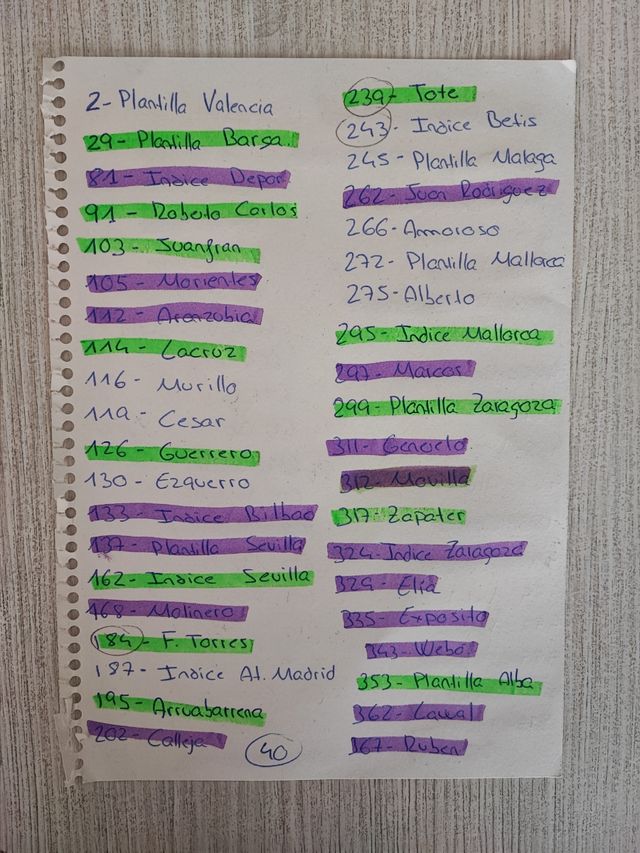 2- Plantilla Valencia
29- Plantilla Barça
81- Indice Depor
91- Roberto Carlos
103- Juanfran
105- Morientes
112- Aranzubia
114- Lacruz
116- Murillo
119- Cesar
126- Guerrero
130- Ezquerro
133- Indice Bilbao
137- Plantilla Sevilla
162- Indice Sevilla
168- Molinero
184- F. Torres
187- Indice At. Madrid
195- Arruabarrena
202- Calleja
40
239- Tote
243- Indice Betis
245- Plantilla Malaga
262- Juan Rodriguez
266- Amoroso
272- Plantilla Mallorca
275- Alberto
295- Indice Mallorca
297- Marcos
299- Plantilla Zaragoza
311- Generelo
312- Movilla
317- Zapater
324- Indice Zaragoza
329- Elia
335- Exposito
343- Webo
353- Plantilla Alba
362-
367- Ruben